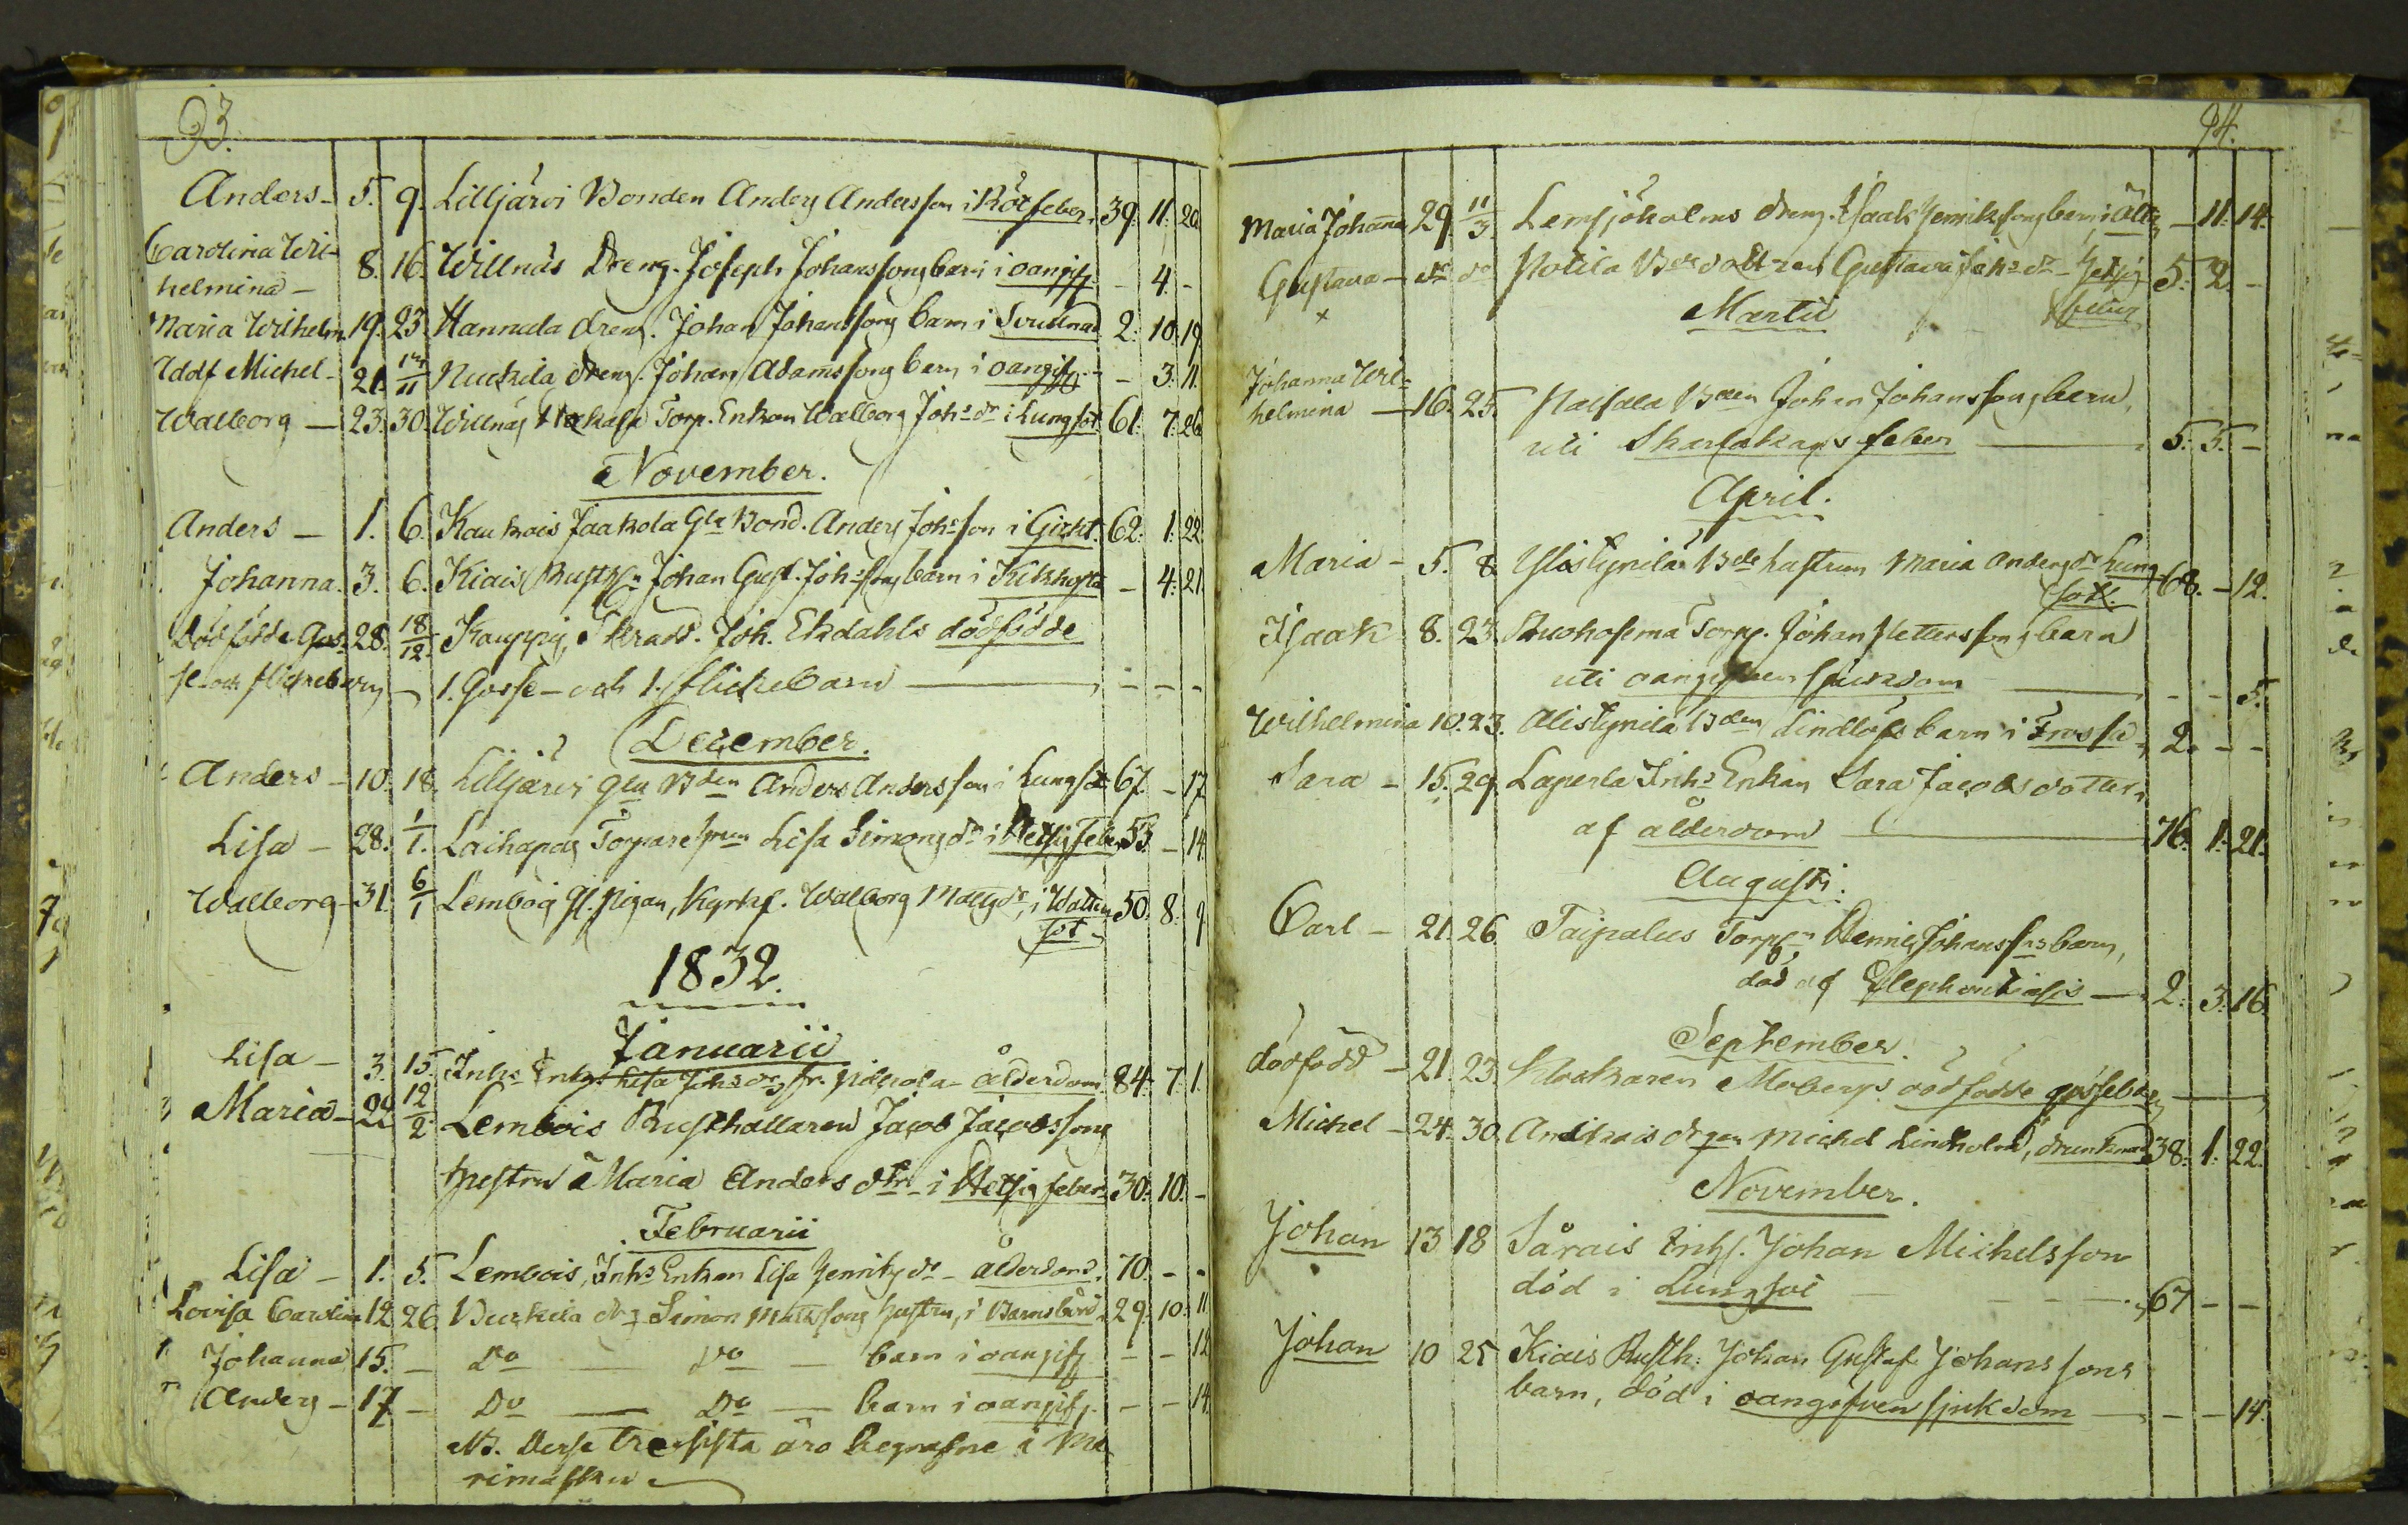 93.
Anders - 5. 9. Lilljärvi Bonden Anders Andersson i Rötfeber. 39. 11. 20.
Carolina Wil-
helmina - 8. 16. Willnäs Dreng. Joseph Johanssons barn i oangif. - 4. -
Maria Wilhelm. 19. 23. Hannula dreng. Johan Johanssons barn i Svullnad 2. 10. 19
Adolf Michel - 21. 11 Nuckila dreng. Johan Adamssons barn i oangif. - 3. 11.
Walborg - 23. 30. Willnäs Torp. Enkan Walborg Johs dr i Lungsot 61. 7. 26
November.
Anders - 1. 6. Kaukois Jaakola Gla Bond. Anders Johsson i Gickt. 62. 1. 22
Johanna. 3. 6. Kiais Rusth. Johan Gust. Johssons barn i Kikhosta - 4. 21
Dödfödde Gos- 28. 18/12. Kauppis, Joh. Ekdahls dödfödde
se och flickebarn - 1. Gosse - och 1. flickebarn - - - -
December.
Anders - 10. 18. Lilljärvi gla Bden Anders Andersson i Lungsot 67 - 17
Lisa - 28. 1/1. Laihapas Torpare Lisa Simons dr i Hetsig Feber 53. - 14.
Walborg - 31. 6/1 Lembois Pigan, Walborg Matts dr, i Watten 50. 8. 9
sot -
1832.
Januarii
Lisa - 3. 15. Inhs Enk. Lisa Johs dr, fr. ålderdom 84. 7. 1.
Maria - 29 12/2 Lembois Rusthållaren Jacob Jacobssons
hustru Maria Anders dtr i Hetsig feber. 30. 10. -
Februarii
Lisa - 1. 5. Lembois, Inhs Enkan Lisa Henriks dr - ålderdom. 70. - -
Lovisa Carolina 12 26 Simon Mattssons hustru, i Barnsbörd 29. 10. 11
Johanna 15. - Do Do - barn i oangif. - - 12
Anders - 17 - Do - Do - barn i oangif. - - 14.
NB. Desse tre sista äro begrafne i Me-
rimasku
94.
Maria Johanna 29 11/3. Lemsjöholms dreng. Isaak Henrikssons barn, i Älta - 11. 14.
Gustava - do do Nolila Bde dottren Gustava Johs dr - Hetsig 5. 2. -
feber
Martii
Johanna Wil-
helmina - 16. 25. Bden Johan Johanssons barn,
uti Skarlakans feber - 5. 5. -
April.
Maria - 5. 8. Ylistynilä Bde hustrun Maria Anders dr Lung- 68. - 12.
sot.
Isaak 8. 23. Ruohosema Torp. Johan Petterssons barn
uti oangifven sjukdom - - - 5.
Wilhelmina 10. 23. Alistynilä Bden Lindlöfs barn i Frossa, 2. - -
Sara - 15. 29. Laperla Inhs Enkan Sara Jacobsdotter,
af ålderdom - 76. 1. 21.
Augusti.
Carl - 21. 26. Taipalus Torp. Henric Johanssons barn,
död af Elephantiasis - 2. 3. 16.
September.
dödfödd - 21. 23. Klockaren Mobergs dödfödde gossebarn -
Michel - 24. 30. Antkois drgen Michel Lindholm, drunknad 38. 1. 22.
November.
Johan 13 18 Särais Inhs. Johan Michelsson
död i Lungsot - 67 - -
Johan 10 25 Kiais Rusth: Johan Gustaf Johanssons
barn, död i oangifven sjukdom - - - 14.